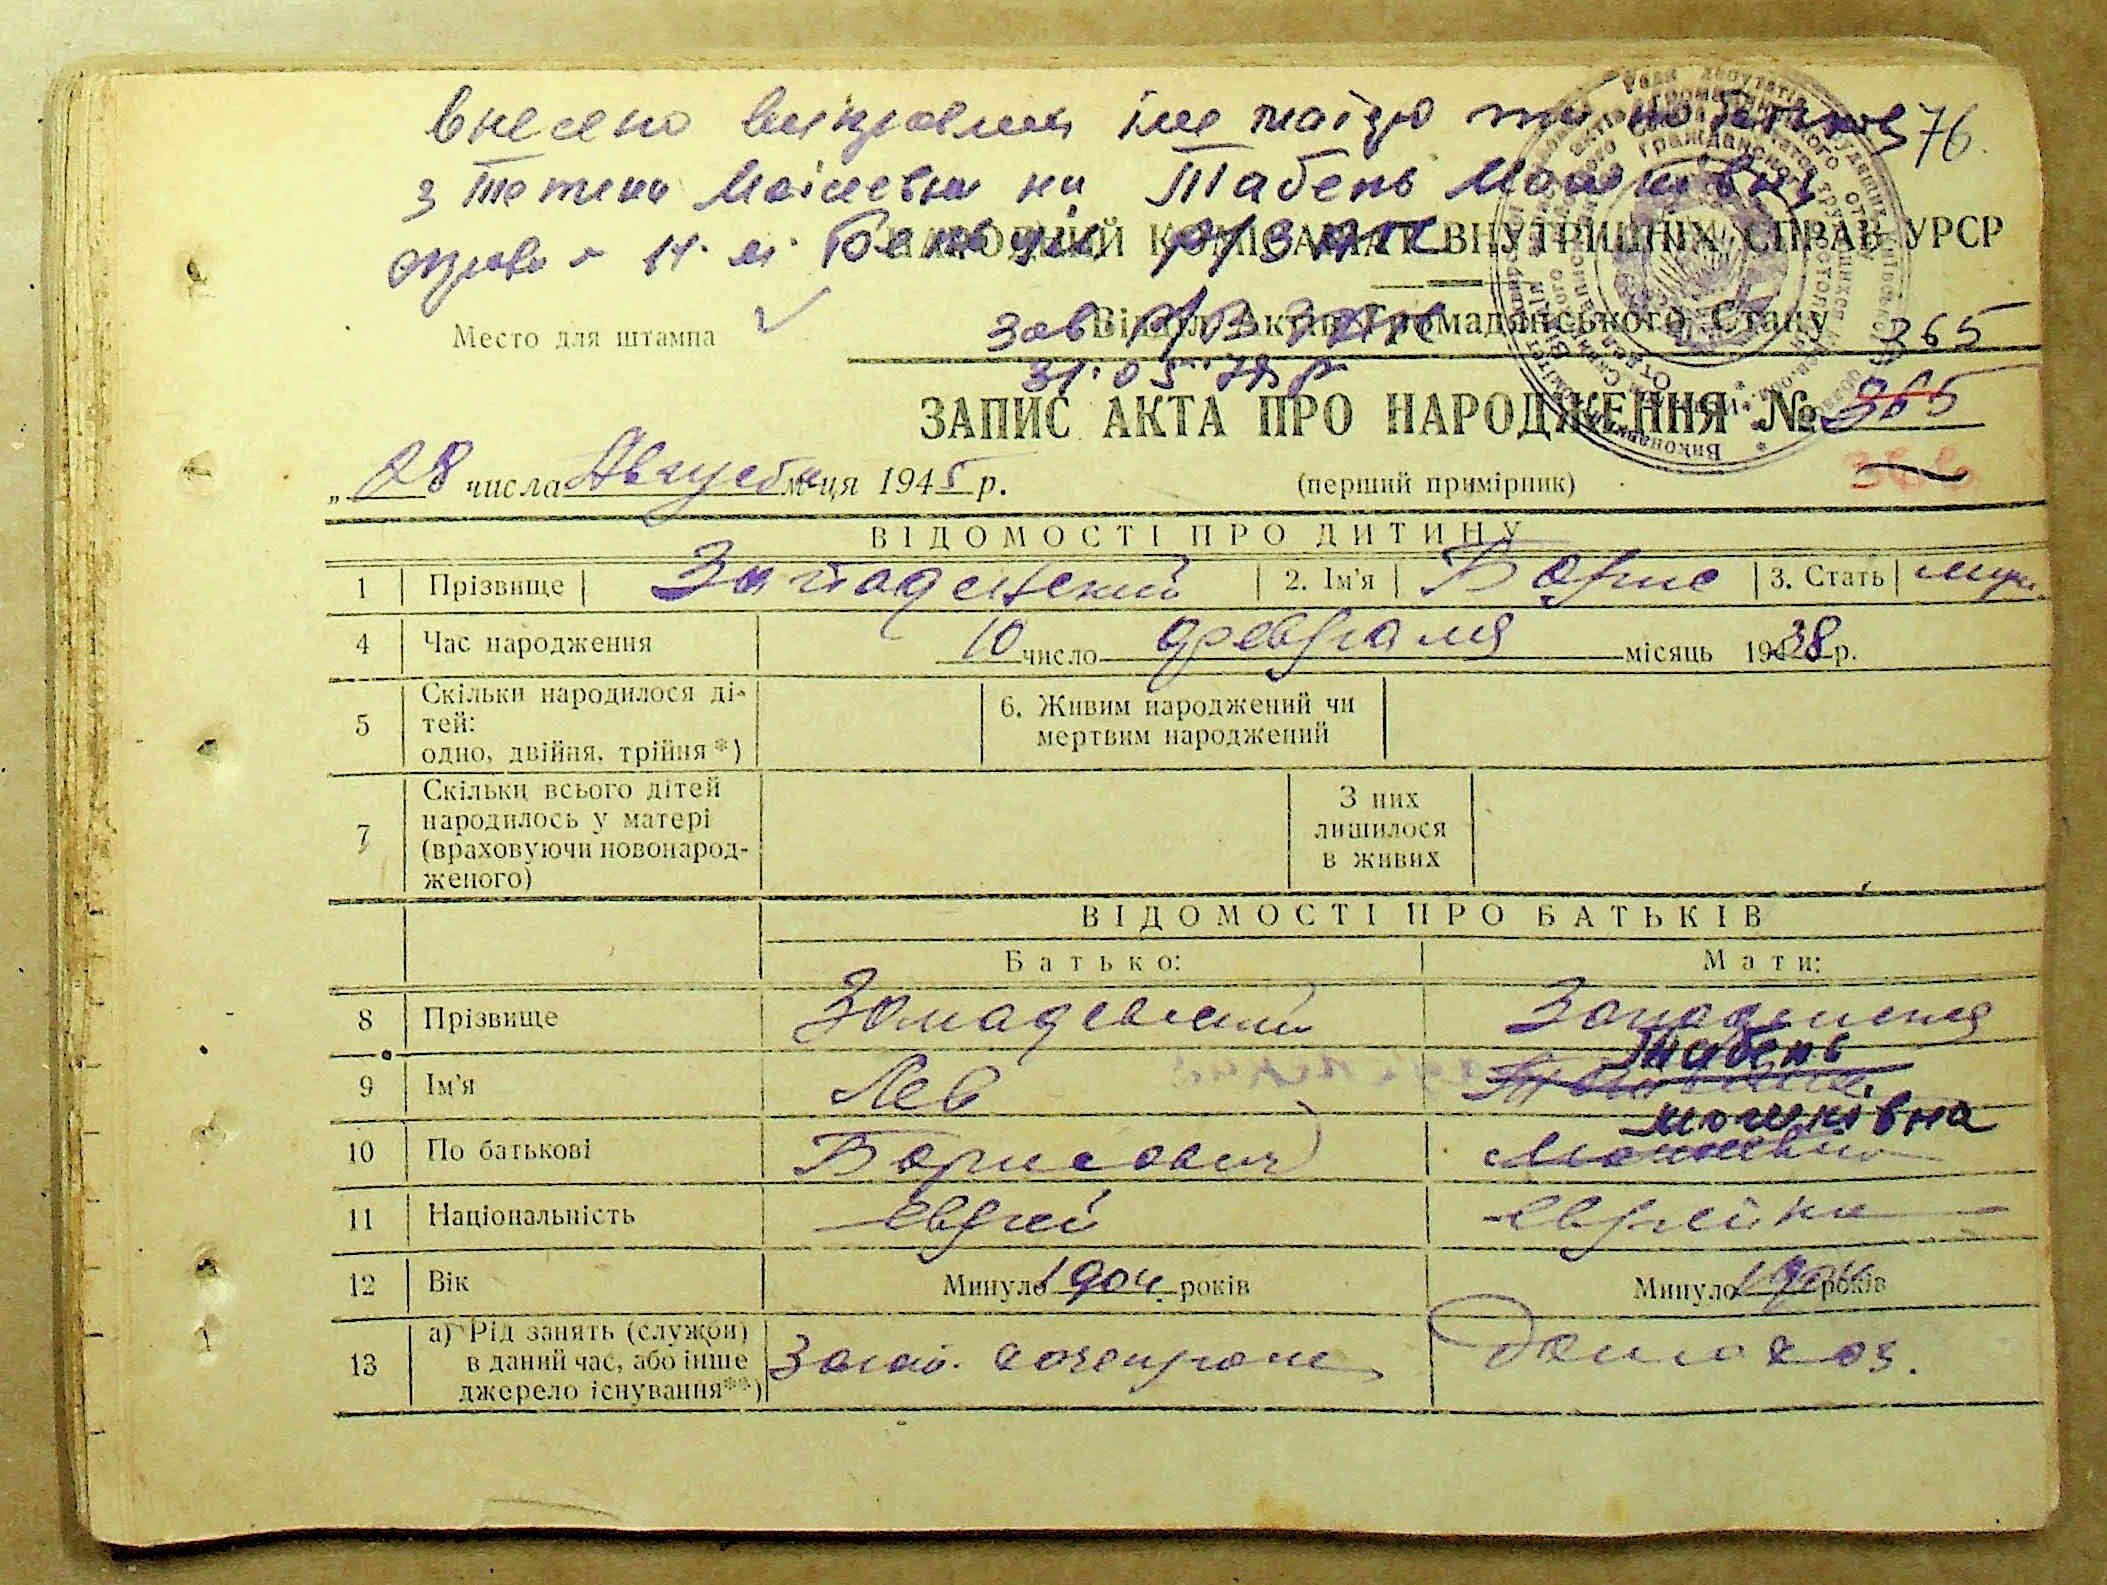 внесено виправлен імя матері та по батькові 76.
з Тетяни Моісеевни на Табень Мошківна
НАРОДНІЙ КОМІСАРІАТ ВНУТРІШНІХ СПРАВ УРСР
Место для штампа
Зав
Відділ Актів Громадянського Стану 365
31.05.79 р
ЗАПИС АКТА ПРО НАРОДЖЕННЯ № 365
„28 числа Августа м-ця 1945 р. (перший примірник)
ВІДОМОСТІ ПРО ДИТИНУ
1 Прізвище Западенский 2. Ім'я Борис 3. Стать муж.
4 Час народження 10 число февраля місяць 1938 р.
5 Скільки народилося ді-
тей:
одно, двійня, трійня*)
6. Живим народжений чи
мертвим народжений
7 Скільки всього дітей
народилось у матері
(враховуючи новонарод-
женого)
З них
лишилося
в живих
ВІДОМОСТІ ПРО БАТЬКІВ
Батько: Мати:
8 Прізвище
9 Ім'я Лев Табень
10 По батькові Борисович мошківна
11 Національність еврей еврейка
12 Вік Минуло 1904 років Минуло років
13 а) Рід занять (служби)
в даний час, або інше
джерело існування**)
домохоз.